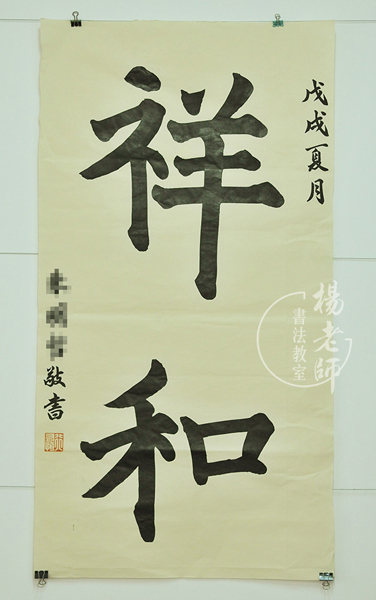 戊戌夏月
祥和
敬書
楊老師
書法教室